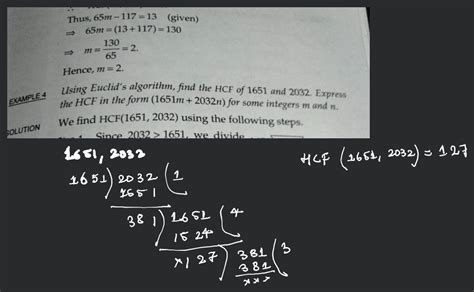 Thus, 65m – 117 = 13 (given)
⇒ 65m = (13 + 117) = 130
⇒ m = 130/65 = 2.
Hence, m = 2.
EXAMPLE 4 Using Euclid's algorithm, find the HCF of 1651 and 2032. Express
the HCF in the form (1651m + 2032n) for some integers m and n.
SOLUTION We find HCF(1651, 2032) using the following steps.
Since 2032 > 1651, we divide
1651, 2032
HCF (1651, 2032) = 127
1651) 2032 (1
1651
381) 1651 (4
1524
×127) 381 (3
381
×××